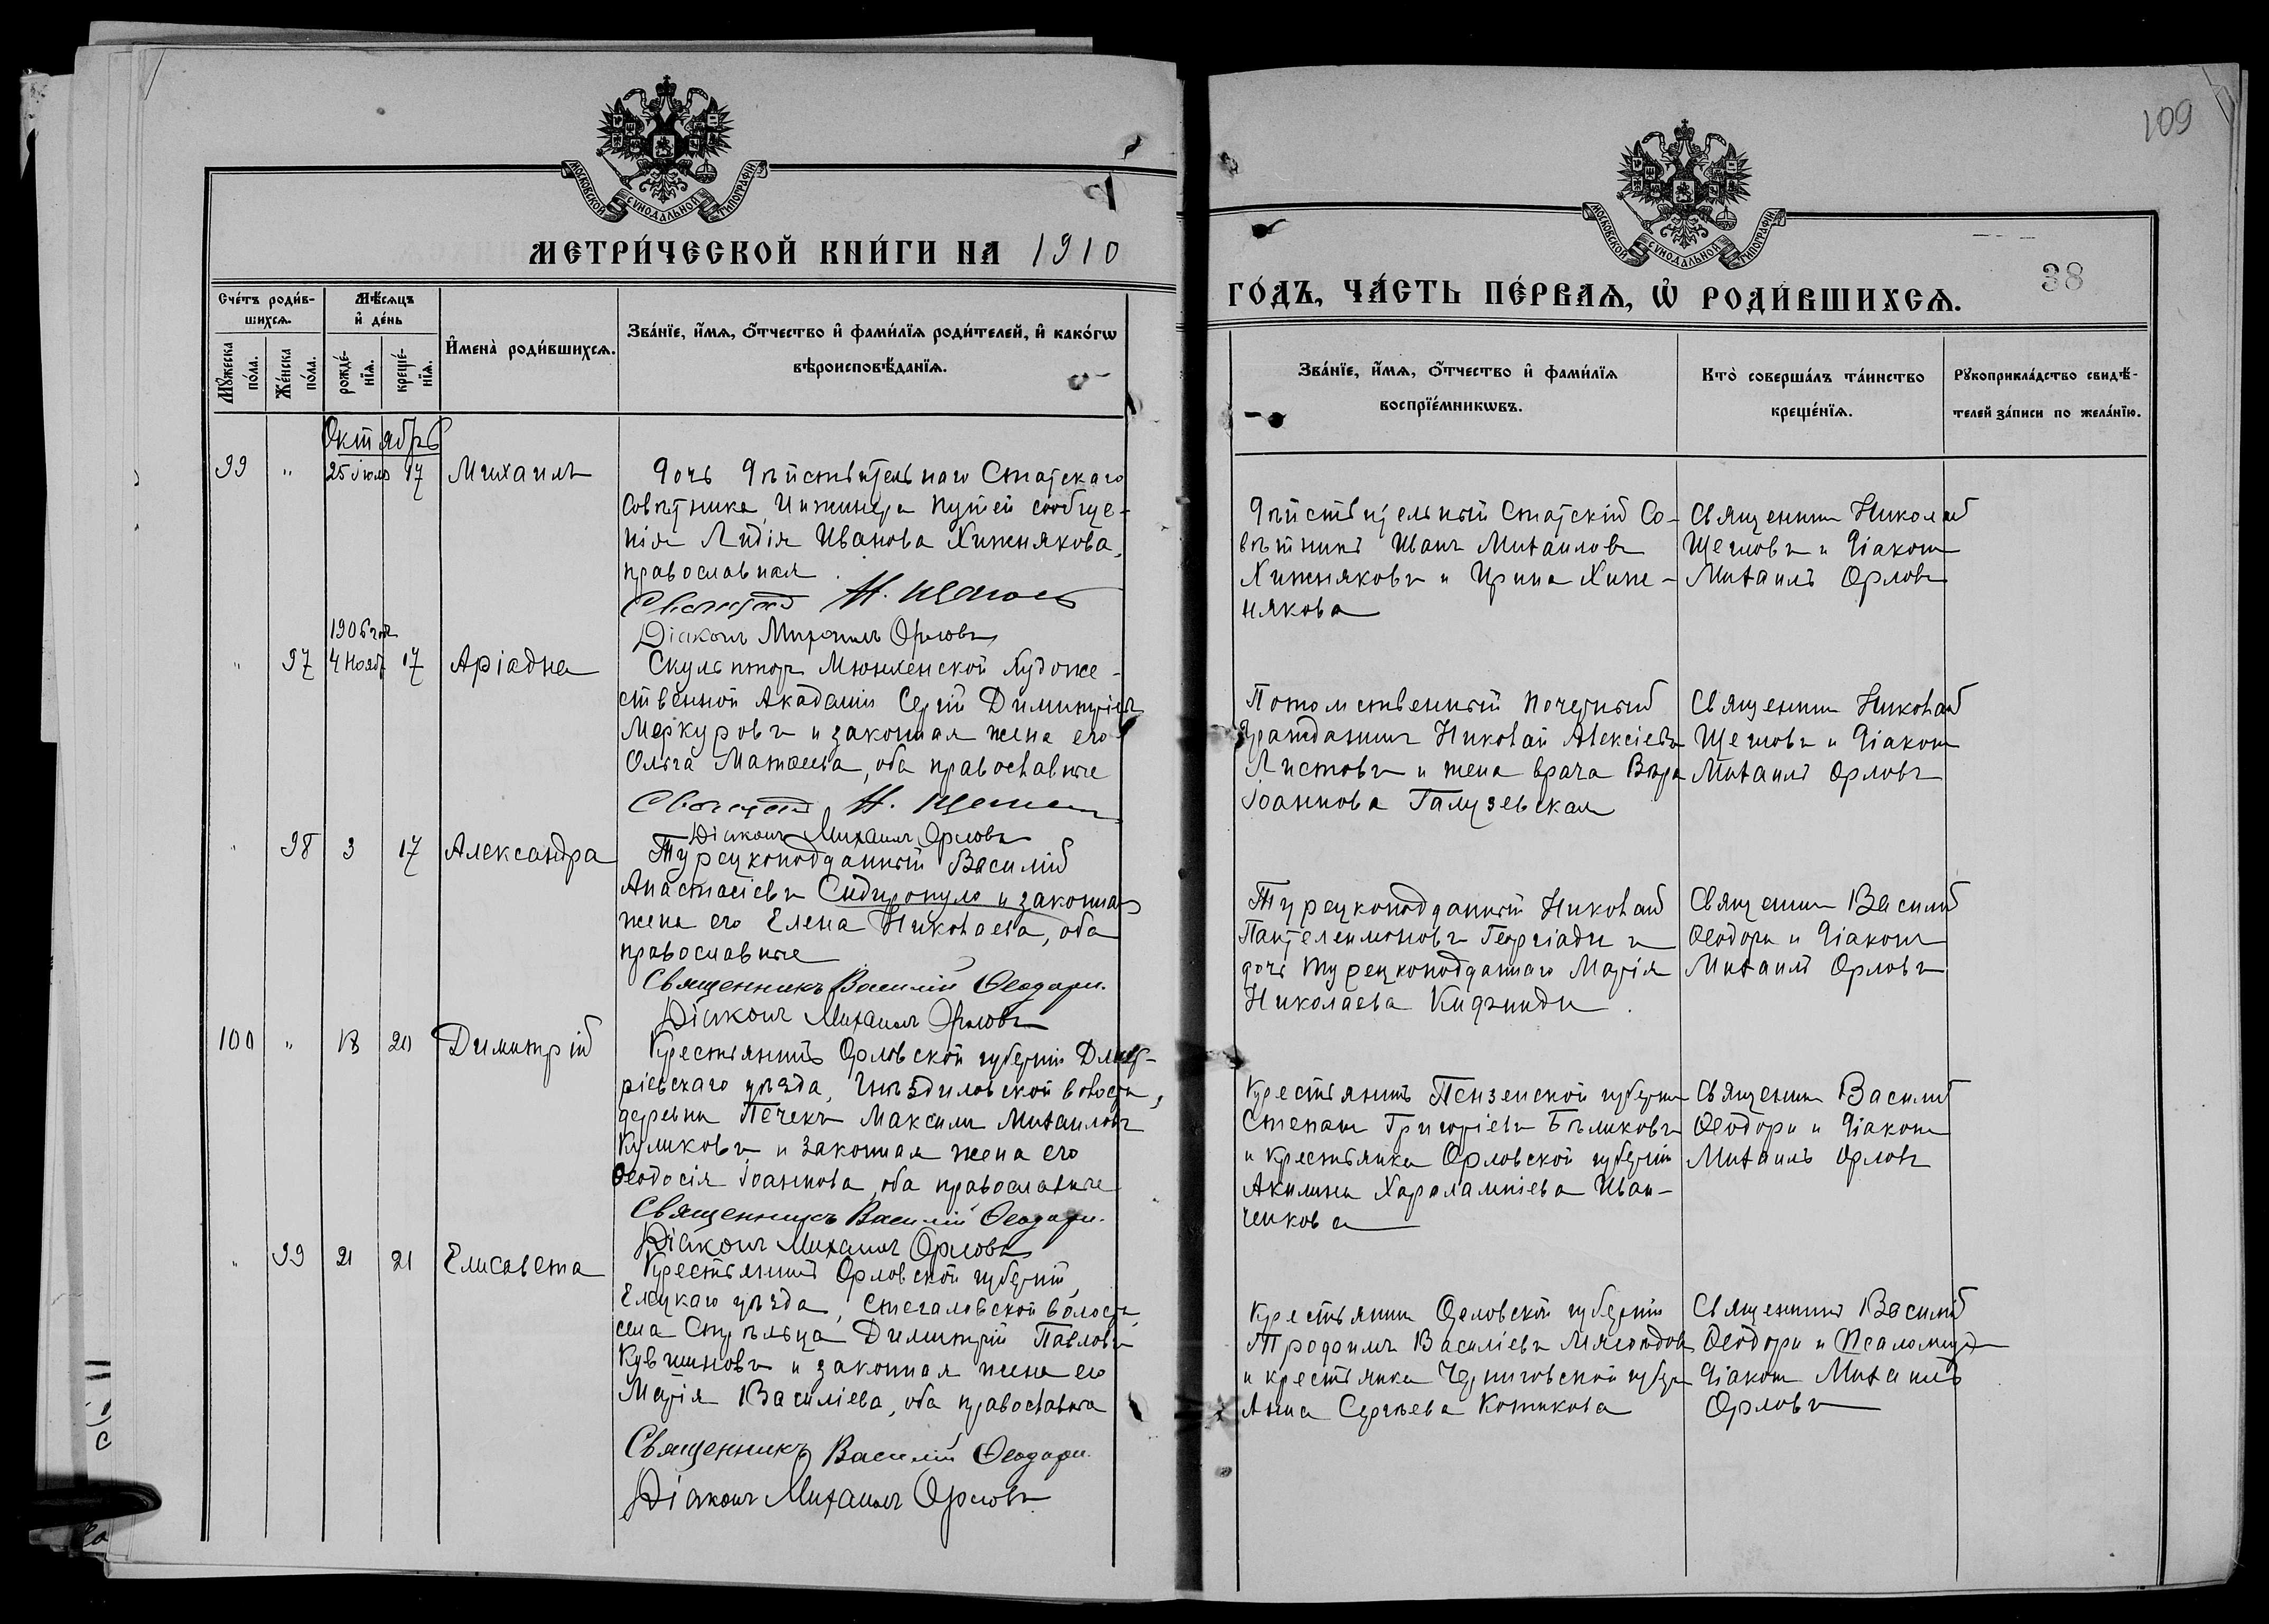 109
МОСКОВСКОЙ СУНОДАЛЬНОЙ ТИПОГРАФІИ
МЕТРИ́ЧЕСКОЙ КНИ́ГИ НА 1910
Сче́тъ роди́вшихся.
Мѣ́сяцъ и҆ де́нь
Мꙋ́жеска по́ла.
Же́нска по́ла.
рожде́нїя.
креще́нїя.
И҆мена̀ роди́вшихся.
Зва́нїе, и҆́мя, ѻ҆́тчество и҆ фами́лїя роди́телей, и҆ како́гѡ
вѣроисповѣ́данїя.
Октябрь
99 " 25 Іюля 17 Михаилъ
Дочь Дѣйствительнаго Статскаго
Совѣтника, Инженера путей сообще-
нія Лидія Иванова Хижнякова,
православная.
Діаконъ Михаилъ Орловъ
1906 года
" 97 4 Нояб 17 Аріадна
Скульпторъ Мюнхенской Художе-
ственной Академіи Сергій Димитріевъ
Меркуровъ и законная жена его
Ольга Матѳеева, оба православные
Діаконъ Михаилъ Орловъ
" 98 3 17 Александра
Турецкоподданный Василій
Анастасіевъ Сидиропуло и законная
жена его Елена Николаева, оба
православные
Священникъ Василій Ѳеодори.
Діаконъ Михаилъ Орловъ
100 " 18 20 Димитрій
Крестьянинъ Орловской губерніи Дмит-
ріевскаго уѣзда, Гнѣздиловской волости,
деревни Печекъ Максимъ Михаиловъ
Куликовъ и законная жена его
Ѳеодосія Іоаннова, оба православные
Священникъ Василій Ѳеодори.
Діаконъ Михаилъ Орловъ
" 99 21 21 Елисавета
Крестьянинъ Орловской губерніи,
Елецкаго уѣзда, Стегаловской волости,
села Стрѣльца Димитрій Павловъ
Кувшиновъ и законная жена его
Марія Василіева, оба православные
Священникъ Василій Ѳеодори.
Діаконъ Михаилъ Орловъ
МОСКОВСКОЙ СУНОДАЛЬНОЙ ТИПОГРАФІИ
ГО́ДЪ, ЧА́СТЬ ПЕ́РВАЯ, Ѡ҆ РОДИ́ВШИХСЯ.
38
Зва́нїе, и҆́мя, ѻ҆́тчество и҆ фами́лїя
воспрїе́мникѡвъ.
Кто̀ соверша́лъ та́инство
креще́нїя.
Рꙋкоприкла́дство свидѣ́-
телей за́писи по жела́нїю.
Дѣйствительный Статскій Со-
вѣтникъ Иванъ Михаиловъ
Хижняковъ и Ирина Хиж-
някова
Священникъ Николай
Щегловъ и Діаконъ
Михаилъ Орловъ
Потомственный Почетный
Гражданинъ Николай Алексіевъ
Листовъ и жена врача Вѣра
Іоаннова Галузевская
Священникъ Николай
Щегловъ и Діаконъ
Михаилъ Орловъ
Турецкоподданный Николай
Пантелеимоновъ Георгіади и
дочь турецкоподданнаго Марія
Николаева
Священникъ Василій
Ѳеодори и Діаконъ
Михаилъ Орловъ
Крестьянинъ Пензенской губерніи
Степанъ Григоріевъ Бѣликовъ
и крестьянка Орловской губерніи
Акилина Харалампіева Иван-
ченкова
Священникъ Василій
Ѳеодори и Діаконъ
Михаилъ Орловъ
Крестьянинъ Орловской губерніи
Трофимъ Василіевъ
и крестьянка Черниговской губер
Анна Сергѣева Котикова
Священникъ Василій
Ѳеодори и Псаломщ
Діаконъ Михаилъ
Орловъ